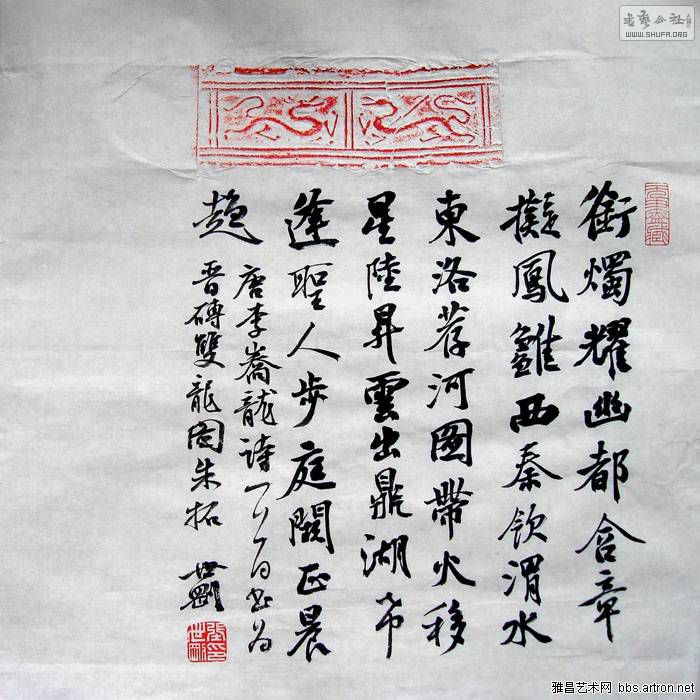 書藝公社
WWW.SHUFA.ORG
銜燭耀幽都含章
擬鳳雛西秦飲渭水
東洛荐河圖帶火移
星陸昇雲出鼎湖希
逢聖人步庭闕正晨
趨
唐李嶠龍詩一书为
晋磚雙龍圖朱拓 世剛
雅昌艺术网 bbs.artron.net